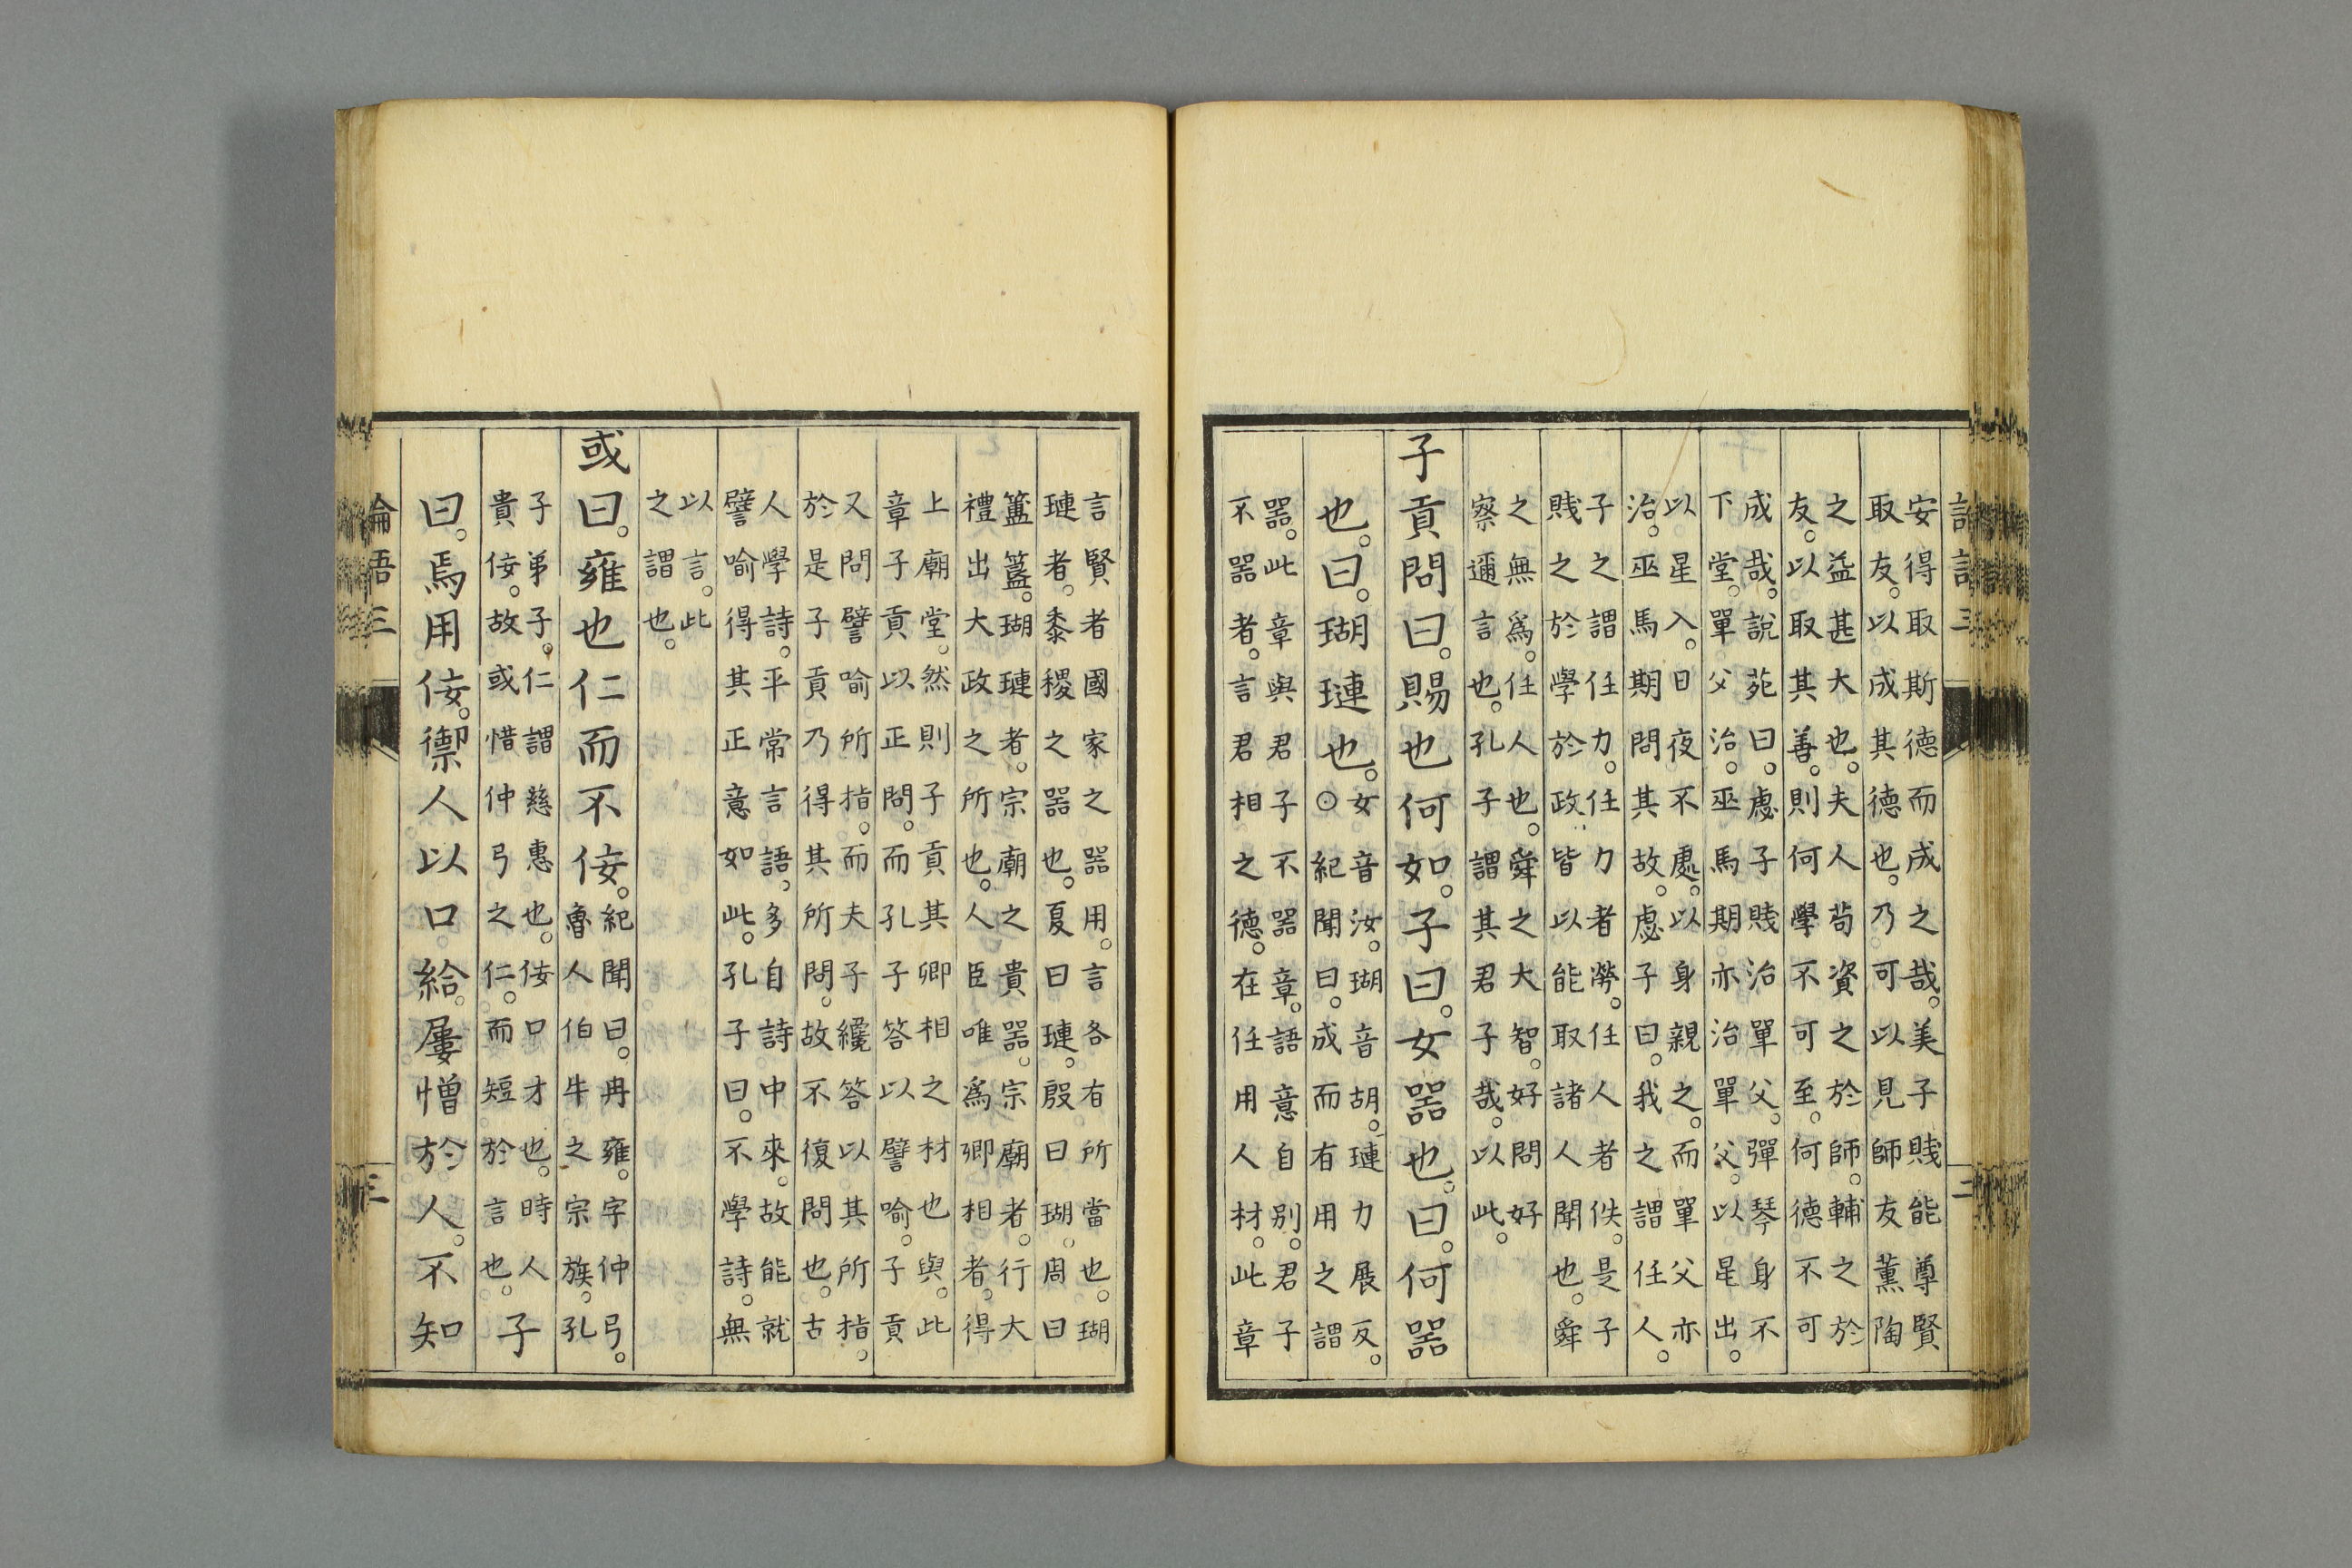 論語三
二
安得取斯德而成之哉。美子賤能尊賢
取友。以成其德也。乃可以見師友薰陶
之益甚大也。夫人苟資之於師。輔之於
友。以取其善。則何學不可至。何德不可
成哉。說苑曰。虙子賤治單父。彈琴身不
下堂。單父治。巫馬期亦治單父。以星出。
以星入。日夜不處。以身親之。而單父亦
治。巫馬期問其故。虙子曰。我之謂任人。
子之謂任力。任力者勞。任人者佚。是子
賤之於學於政。皆以能取諸人聞也。舜
之無爲。任人也。舜之大智。好問好
察邇言也。孔子謂其君子哉。以此。
子貢問曰。賜也何如。子曰。女器也。曰。何器
也。曰。瑚璉也。
女音汝。瑚音胡。璉力展反。
⊙紀聞曰。成而有用之謂
器。此章與君子不器章。語意自別。君子
不器者。言君相之德。在任用人材。此章
言賢者國家之器用。言各有所當也。瑚
璉者。黍稷之器也。夏曰璉。殷曰瑚。周曰
簠簋。瑚璉者。宗廟之貴器。宗廟者。行大
禮出大政之所也。人臣唯爲卿相者。得
上廟堂。然則子貢其卿相之材也與。此
章子貢以正問。而孔子答以譬喻。子貢
又問譬喻所指。而夫子纔答以其所指。
於是子貢乃得其所問。故不復問也。古
人學詩。平常言語。多自詩中來。故能就
譬喻得其正意如此。孔子曰。不學詩。無
以言。此
之謂也。
或曰。雍也仁而不佞。
紀聞曰。冉雍。字仲弓。
魯人伯牛之宗族。孔
子弟子。仁謂慈惠也。佞口才也。時人
貴佞。故或惜仲弓之仁。而短於言也。
子
曰。焉用佞。禦人以口給。屢憎於人。不知
論語三
三